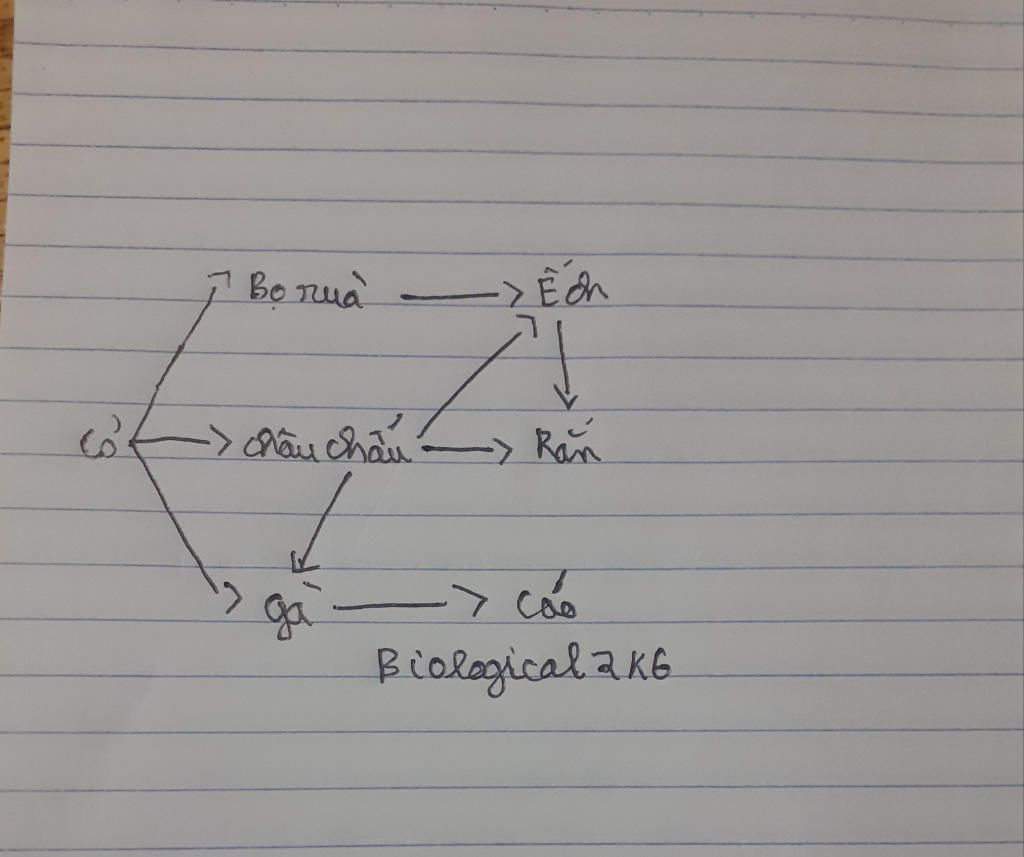 Bọ rùa Ếch
Cỏ châu chấu Rắn
gà Cáo
Biological 2K6